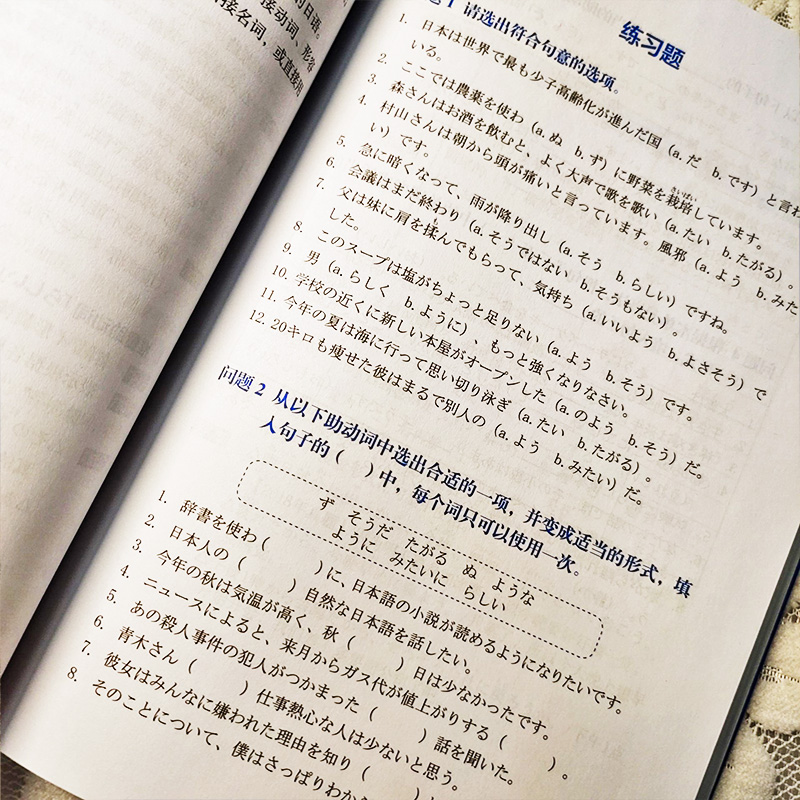 的日语。
接动词、形容
接名词，或直接用
练习题
题 1 请选出符合句意的选项。
1. 日本は世界で最も少子高齢化が進んだ国（a. だ b. です）と言わ
いる。
2. ここでは農薬を使わ（a. ぬ b. ず）に野菜を栽培しています。
さいばい
3. 森さんはお酒を飲むと、よく大声で歌を歌い（a. たい b. たがる）。
4. 村山さんは朝から頭が痛いと言っています。風邪（a. よう b. みた
い）です。
5. 急に暗くなって、雨が降り出し（a. そう b. らしい）ですね。
6. 会議はまだ終わり（a. そうではない b. そうもない）。
7. 父は妹に肩を揉んでもらって、気持ち（a. いいよう b. よさそう）で
した。
8. このスープは塩がちょっと足りない（a. よう b. そう）です。
9. 男（a. らしく b. ように）、もっと強くなりなさい。
10. 学校の近くに新しい本屋がオープンした（a. のよう b. そう）だ。
11. 今年の夏は海に行って思い切り泳ぎ（a. たい b. たがる）。
12. 20キロも痩せた彼はまるで別人の（a. よう b. みたい）だ。
问题 2 从以下助动词中选出合适的一项，并变成适当的形式，填
入句子的（ ）中，每个词只可以使用一次。
ず そうだ たがる ぬ ような
ように みたいに らしい
1. 辞書を使わ（ ）に、日本語の小説が読めるようになりたいです。
2. 日本人の（ ）自然な日本語を話したい。
3. 今年の秋は気温が高く、秋（ ）日は少なかったです。
4. ニュースによると、来月からガス代が値上がりする（ ）。
5. あの殺人事件の犯人がつかまった（ ）話を聞いた。
6. 青木さん（ ）仕事熱心な人は少ないと思う。
7. 彼女はみんなに嫌われた理由を知り（
8. そのことについて、僕はさっぱりわか